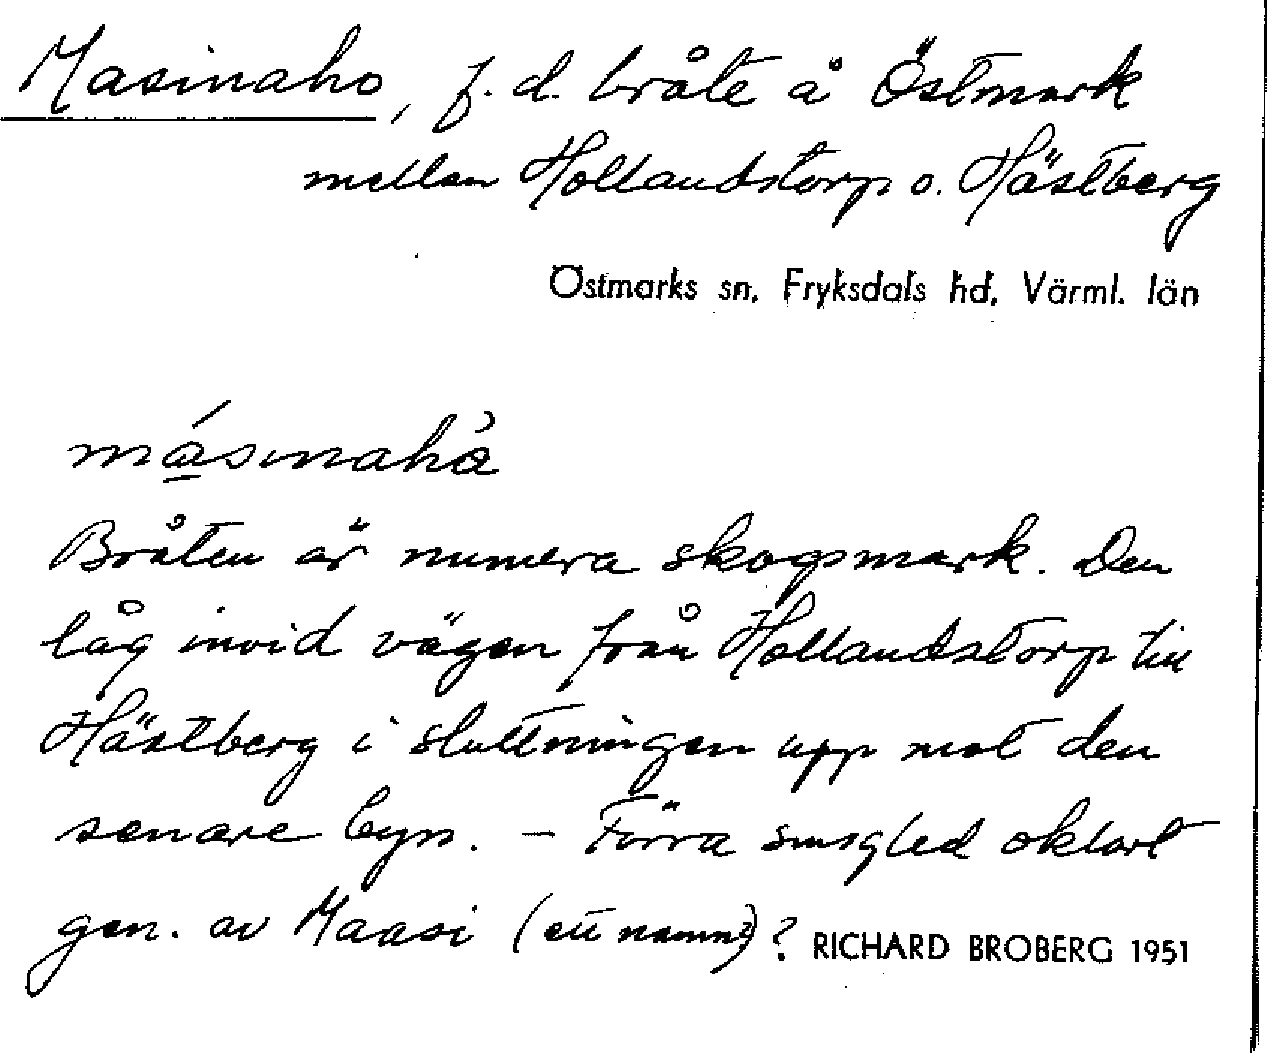 Masinaho, f. d. bråte å Östmark
mellan Hollandstorp o. Hästberg
Östmarks sn. Fryksdals hd. Värml. län
másınahå̀
Bråten är numera skogsmark. Den
låg invid vägen från Hollandstorp till
Hästberg i sluttningen upp mot den
senare byn. – Förra smsgled oklart
gen. av Maasi (ett namn?)?
RICHARD BROBERG 1951